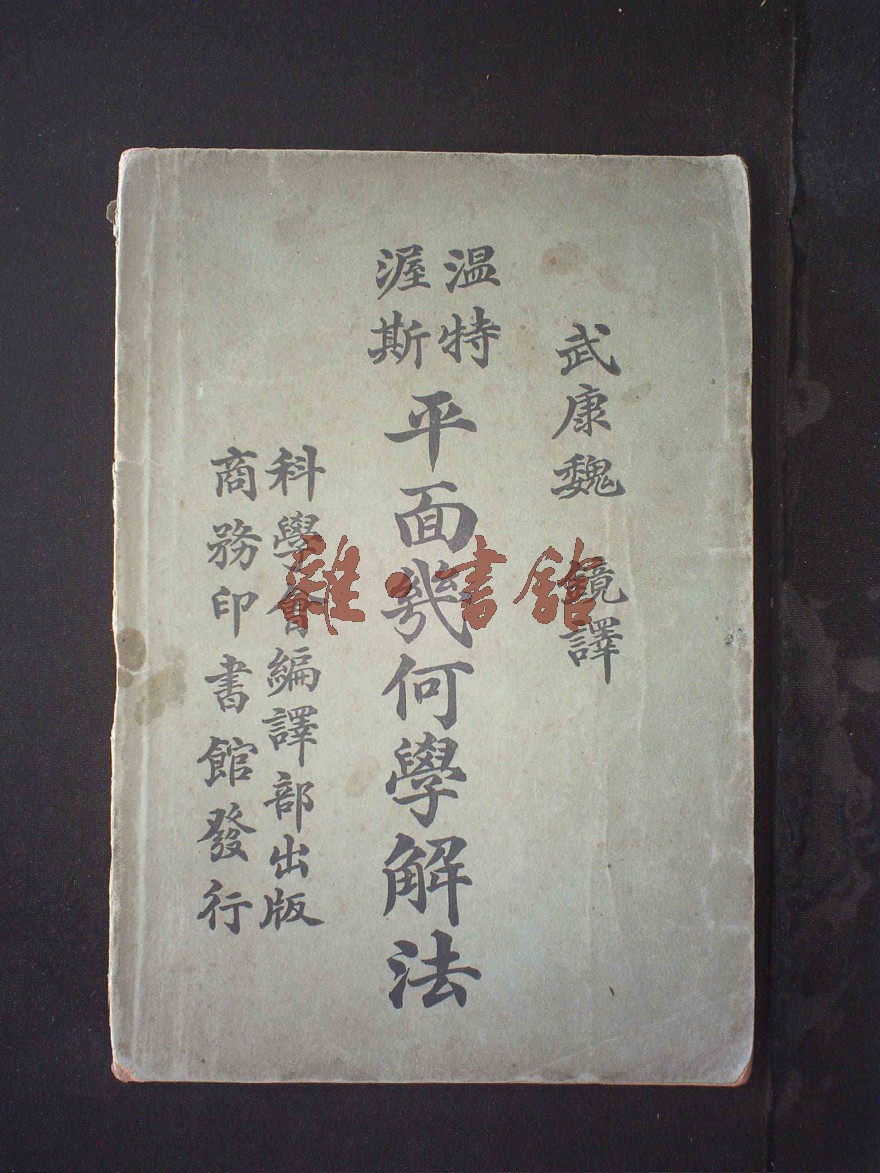 武康魏 鏡譯
溫特
渥斯
平面幾何學解法
科學會編譯部出版
商務印書館發行
雜·書館